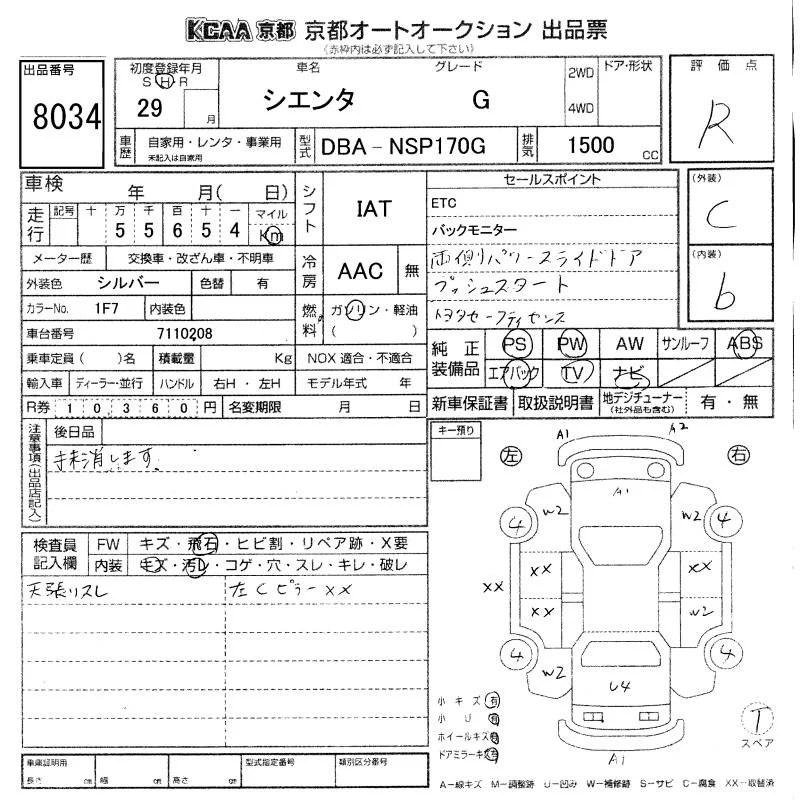 KCAA 京都 京都オートオークション 出品票
(赤枠内は必ず記入して下さい)
出品番号
8034
初度登録年月
S H R
29 月
車名
シエンタ
グレード
G
2WD
4WD
ドア・形状
車歴
自家用・レンタ・事業用
未記入は自家用
型式
DBA-NSP170G
排気
1500 CC
評価点
R
車検 年 月( 日)
走行
記号 十 万 千 百 十 一 マイル
5 5 6 5 4 Km
メーター歴 交換車・改ざん車・不明車
外装色 シルバー 色替 有
カラーNo. 1F7 内装色
車台番号 7110208
乗車定員 ( )名 積載量 Kg
輸入車 ディーラー・並行 ハンドル 右H・左H
R券 10360円 名変期限 月 日
シフト IAT
冷房 AAC 無
燃料 ガソリン・軽油
( )
NOX 適合・不適合
モデル年式 年
セールスポイント
ETC
バックモニター
両側パワースライドドア
プッシュスタート
トヨタセーフティセンス
(外装)
C
(内装)
b
純正装備品
PS PW AW サンルーフ ABS
エアバック TV ナビ
新車保証書 取扱説明書 地デジチューナー
(社外品も含む)
有・無
注意事項(出品店記入)
後日品
抹消します
検査員記入欄
FW キズ・飛石・ヒビ割・リペア跡・X要
内装 キズ・汚レ・コゲ・穴・スレ・キレ・破レ
天張リスレ
左Cピラーxx
キー預り
左
右
A1
A2
A1
W2
W2
4
4
xx
xx
xx
xx
W2
4
4
W2
U4
A1
小キズ 有
小U 有
ホイールキズ 有
ドアミラーキズ 有
T
スペア
車庫証明用
長さ cm 幅 cm 高さ cm
型式指定番号
類別区分番号
A-線キズ M-調整跡 U-凹み W-補修跡 S-サビ C-腐食 XX-取替済